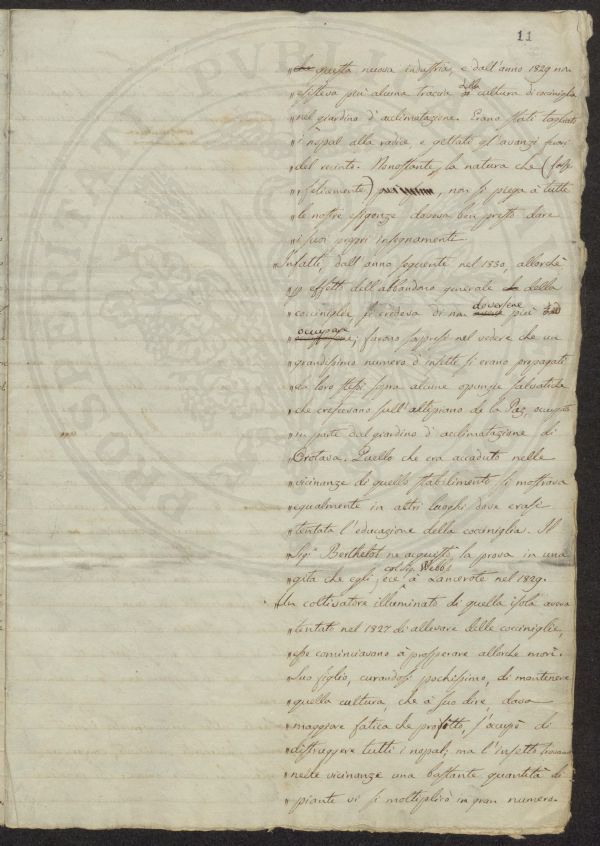 11
questa nuova industria, e dall'anno 1829 non
esisteva più alcuna traccia della cultura di cocciniglia
nel giardino d'aclimatazione. Erano stati tagliati
i nopal alla radice, e gettati gl'avanzi fuori
del recinto. Nonostante, la natura che (forse
felicemente) , non si piega à tutte
le nostre esigenze doveva ben presto dare
i suoi propri insegnamenti.
Infatti, dall'anno seguente nel 1830, allorchè
effetti dell'abbandono generale della
cocciniglie, si credeva di non doversene più
occupare; furono sorpresi nel vedere che un
grandissimo numero d'insetti si erano propagati
da loro stessi sopra alcune opunzie salvatiche
che crescevano sull'altipiano de la Paz, occupato
in parte dal giardino d'aclimatazione di
Orotava. Quello che era accaduto nelle
vicinanze di quello stabilimento si mostrava
egualmente in altri luoghi dove erasi
tentata l'educazione della cocciniglia. Il
Sigr Berthelot ne acquistò la prova in una
gita che egli, col Sig. Webb à Lancerote nel 1829.
Un coltivatore illuminato di quella isola aveva
tentato nel 1827 di allevare delle cocciniglie,
esse cominciavano à prosperare allorche morì.
Suo figlio, curandosi pochissimo, di mantenere
quella cultura, che à suo dire, dava
maggiore fatica che profitto, s'occupò di
distruggere tutti i nopal; ma l'insetto trovando
nelle vicinanze una bastante quantità di
piante vi si moltiplicò in gran numero.